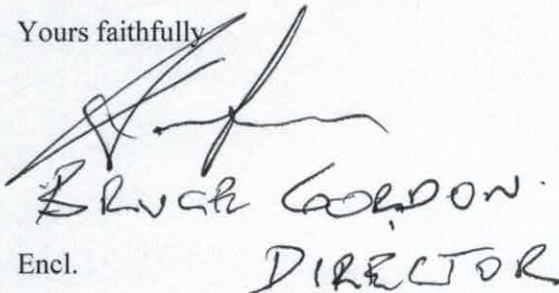 Yours faithfully
BRUCE GORDON.
Encl.
DIRECTOR